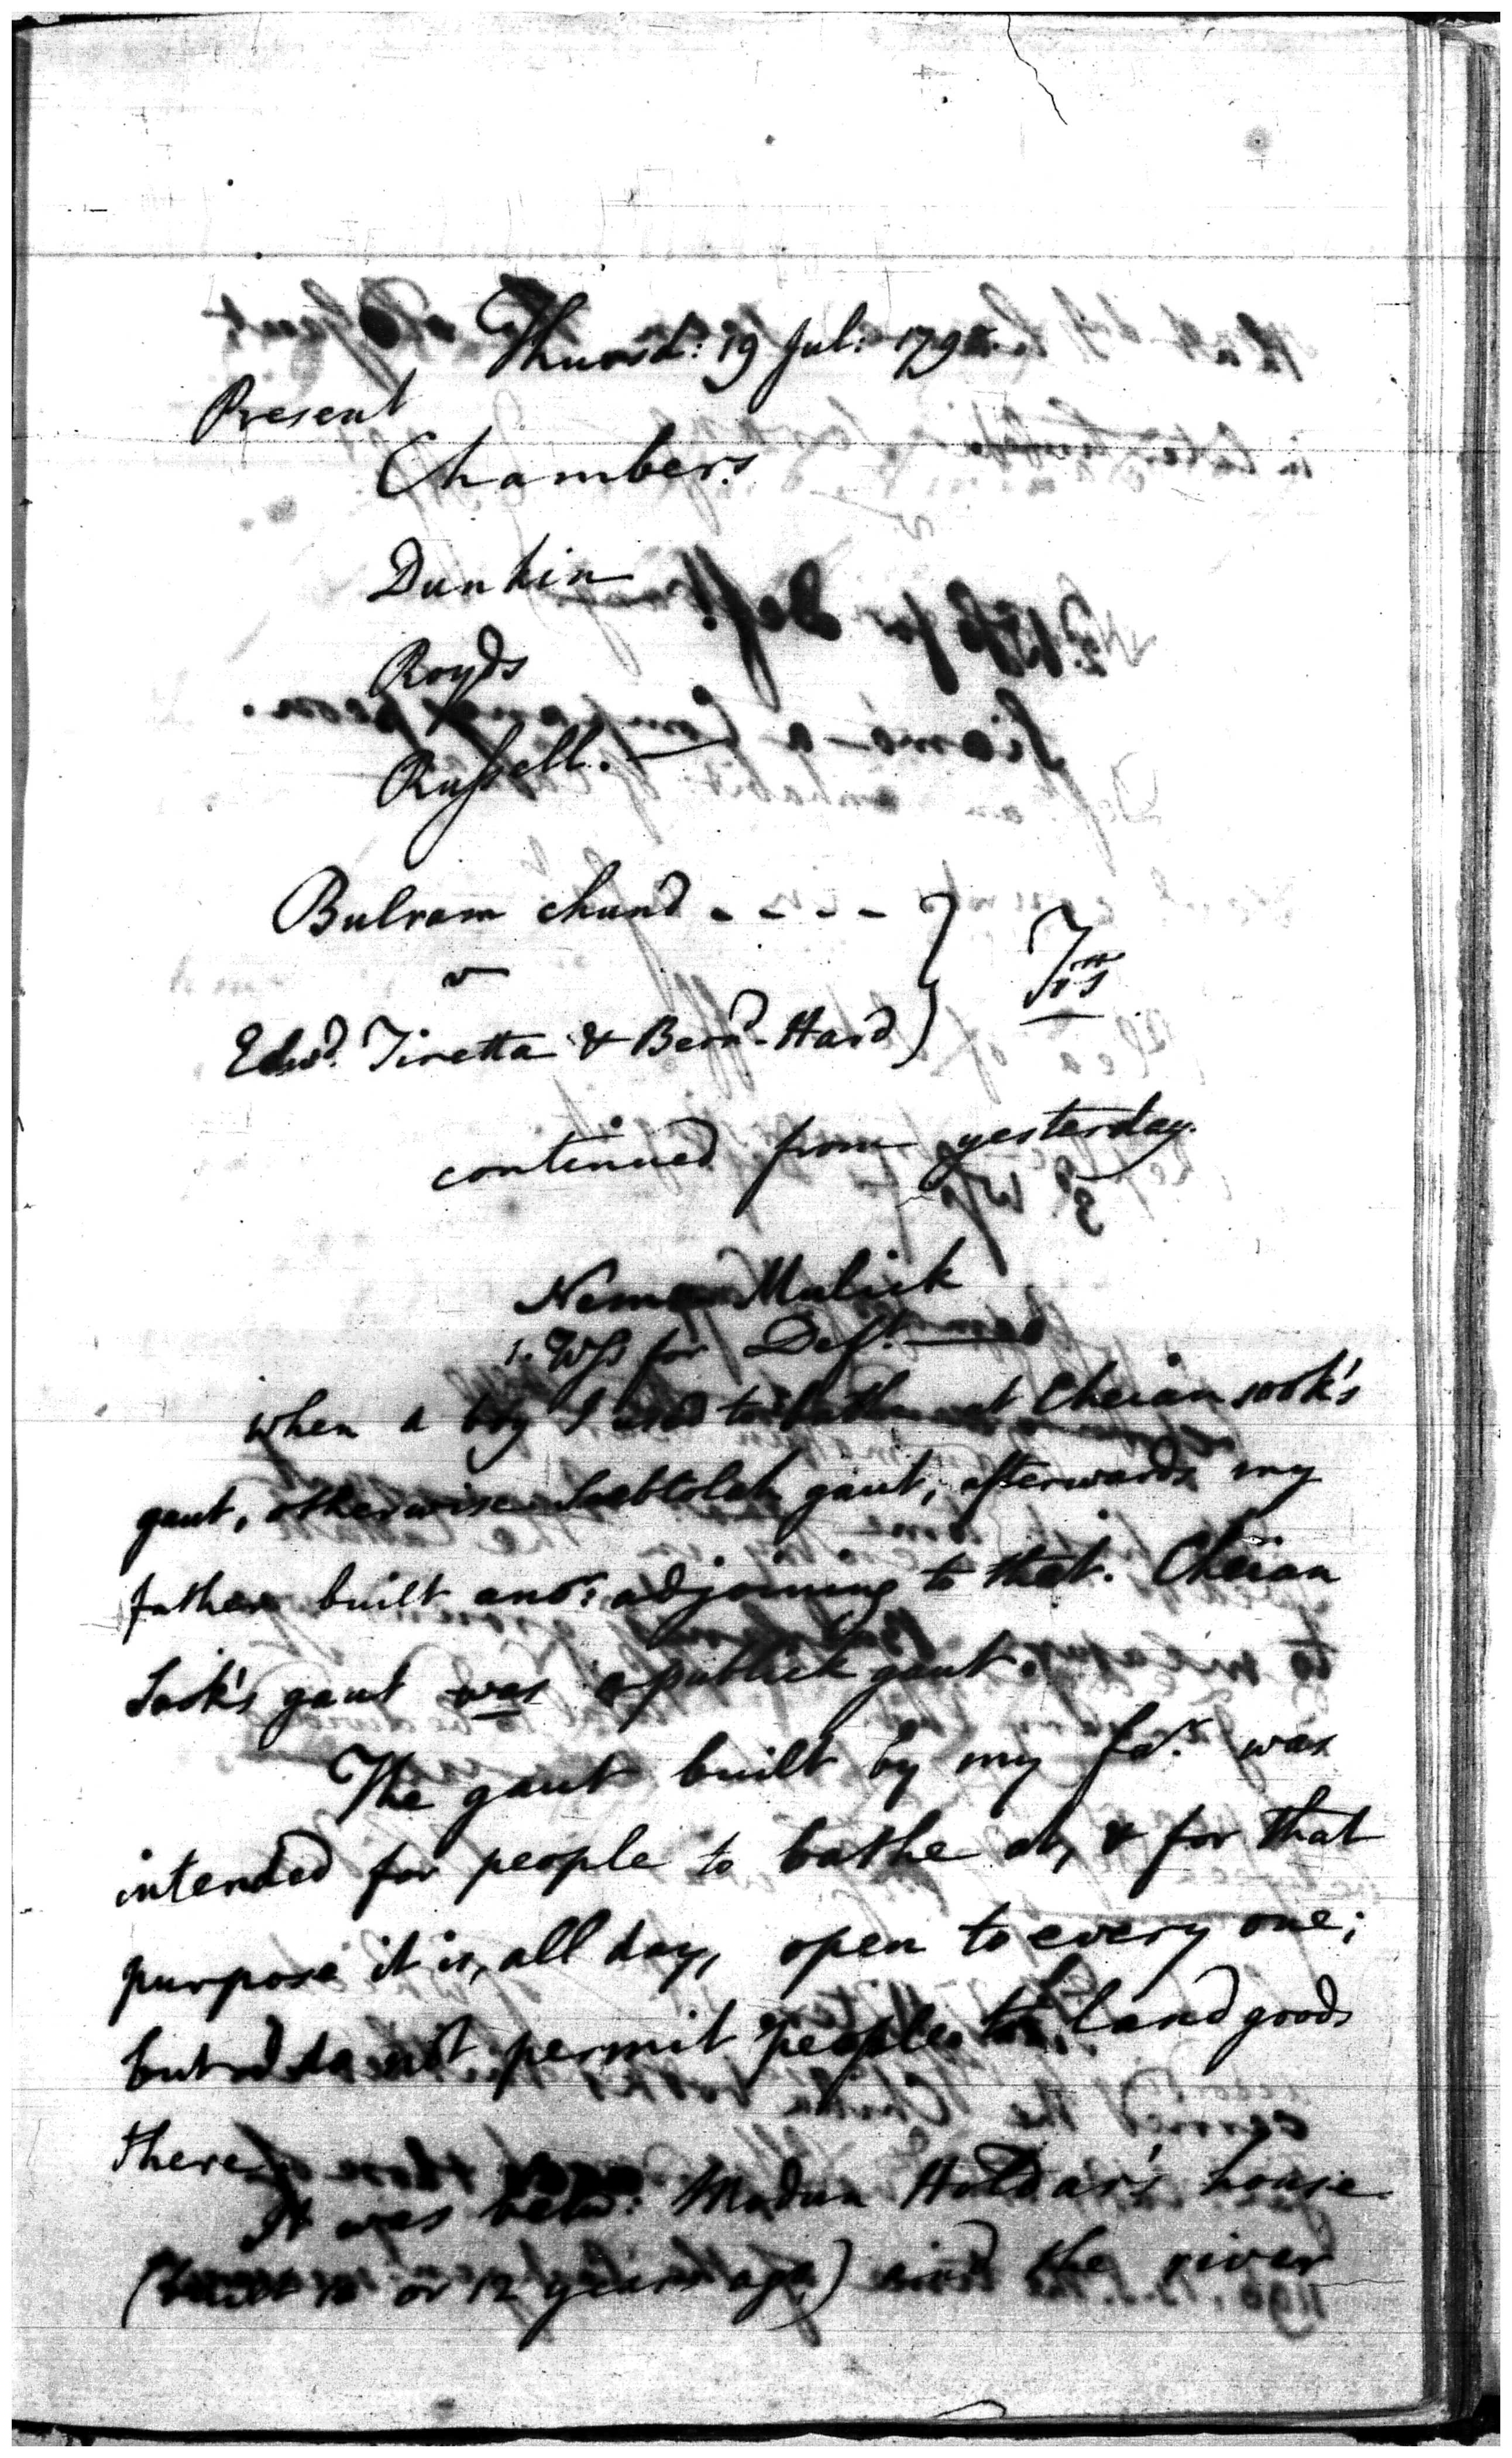 Thursd: 19 Jul: 179
Present
Chambers
Dunkin
Royds
Russell.
Bulram chund - - - -
v
Trss
Edwd. Tiretta & Bernd. Hard
continued from yesterday.
Mulick
1. Wss for Deft.
when a boy I used to bathe at Cheian sook's
gaut, otherwise gaut; afterwards my
father built anor: adjoining to that. Cheian
Sook's gaut was a publick gaut.
The gaut built by my far. was
intended for people to bathe at, & for that
purpose it is, all day, open to every one;
but do not permit people to land goods
there.
It was betw: Modun Holdar's house
(built 10 or 12 years ago) and the river